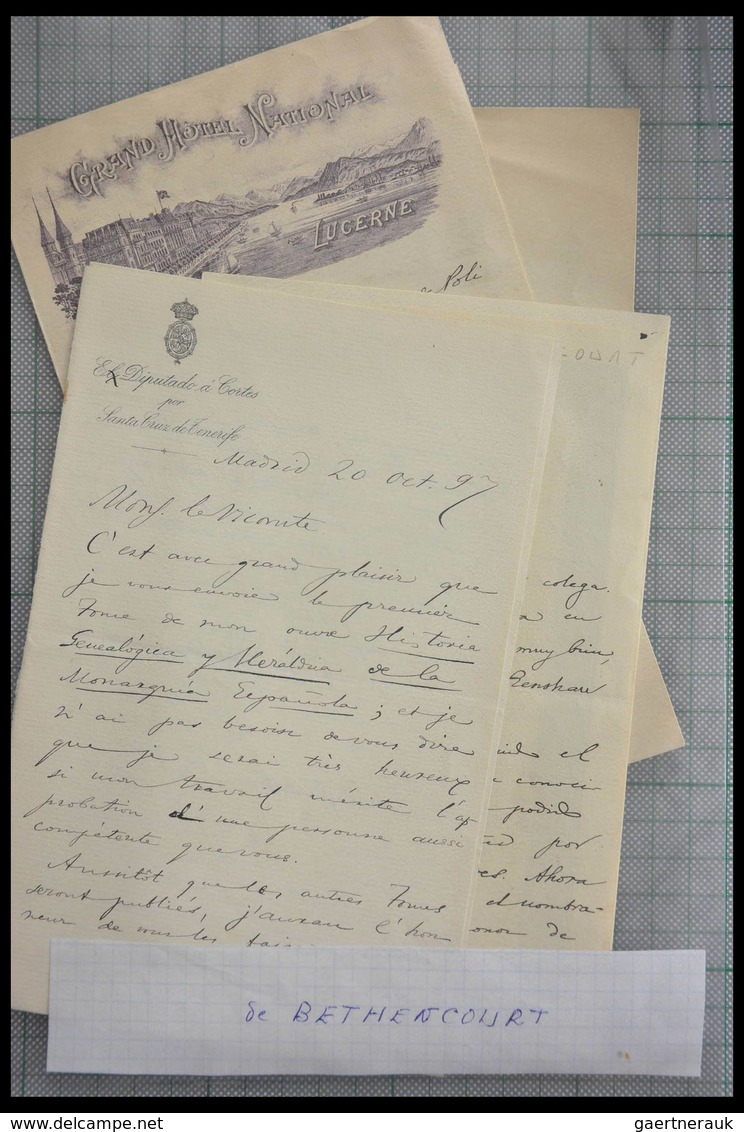 GRAND HÔTEL NATIONAL
LUCERNE
Poli
OURT
Ex Diputado á Cortes
por
Santa Cruz de Tenerife
Madrid 20 Oct. 97
Mons. le Vicomte
C'est avec grand plaisir que
je vous envoie le premier
Tome de mon ouvre Historia
Genealógica y Heráldica de la
Monarquía Española; et je
n'ai pas besoin de vous dire
que je serai très heureux
si mon travail mérite l'ap
probation d'une personne aussi
compétente que vous.
Aussitôt que les autres Tomes
seront publiés, j'aurau l'hon
neur de vous les
colega.
en
muy bien,
el
conoci
podido
por
es. Ahora
el nombra-
onor de
de BETHENCOURT
gaertnerauk